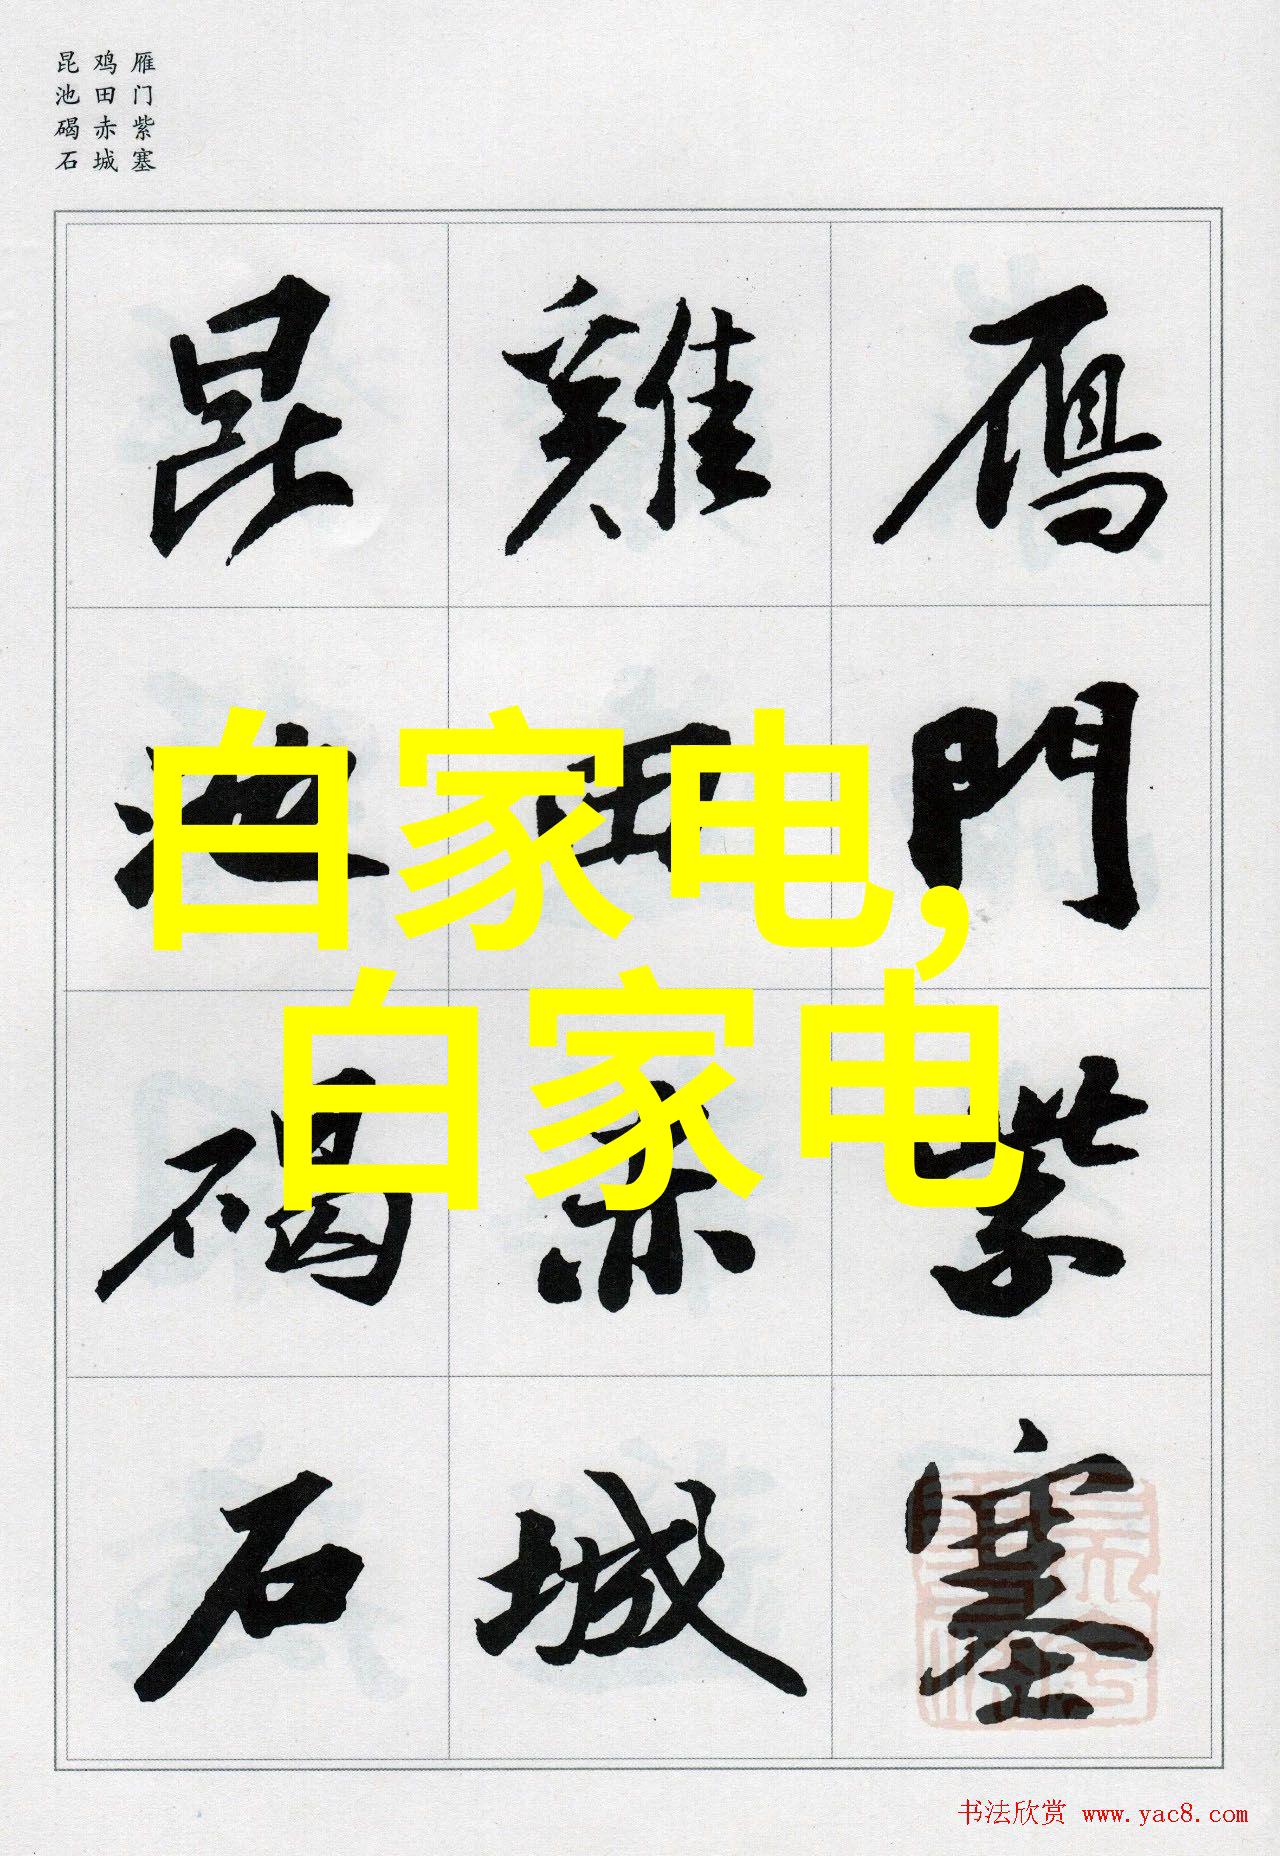 雁门紫塞
鸡田赤城
昆池碣石
鴈門紫塞
雞田赤城
昆池碣石
白家电,
白家电
书法欣赏 www.yac8.com